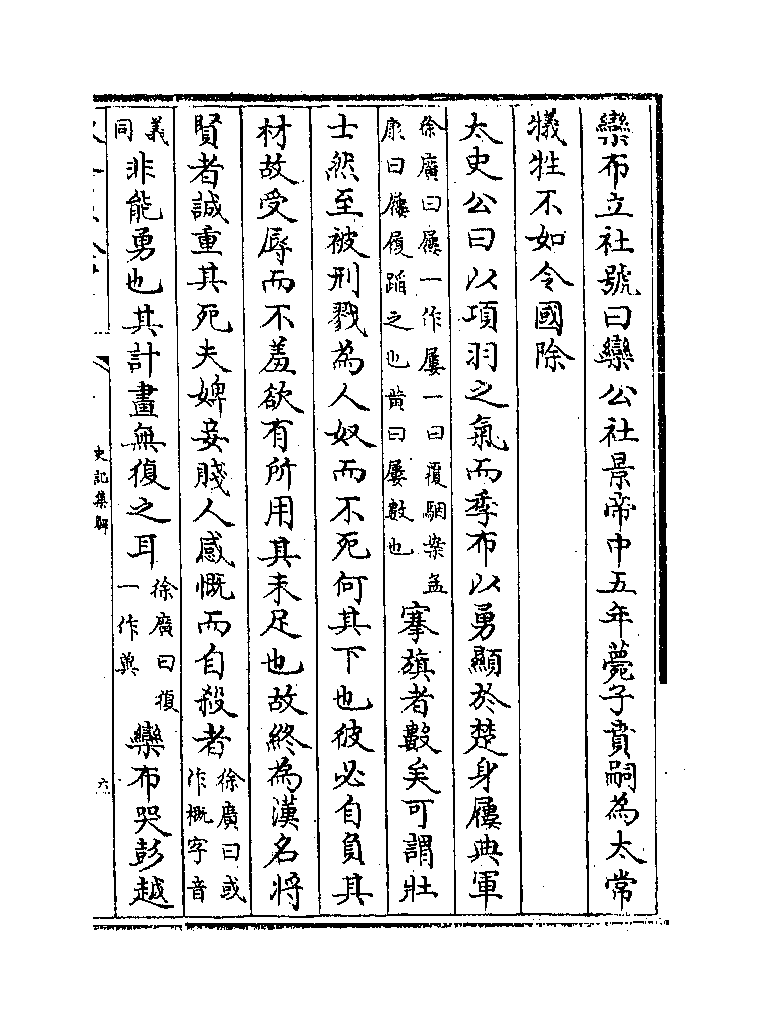 欒布立社號曰欒公社景帝中五年薨子賁嗣為太常
犧牲不如令國除
太史公曰以項羽之氣而季布以勇顯於楚身屨典軍
徐廣曰屨一作屢一曰覆駰案孟
康曰屨履蹈之也黄曰屢數也
搴旗者數矣可謂壯
士然至被刑戮為人奴而不死何其下也彼必自負其
材故受辱而不羞欲有所用其未足也故終為漢名將
賢者誠重其死夫婢妾賤人感慨而自殺者
徐廣曰或
作概字音
義
同
非能勇也其計畫無復之耳
徐廣曰復
一作兾
欒布哭彭越
史記集解
六